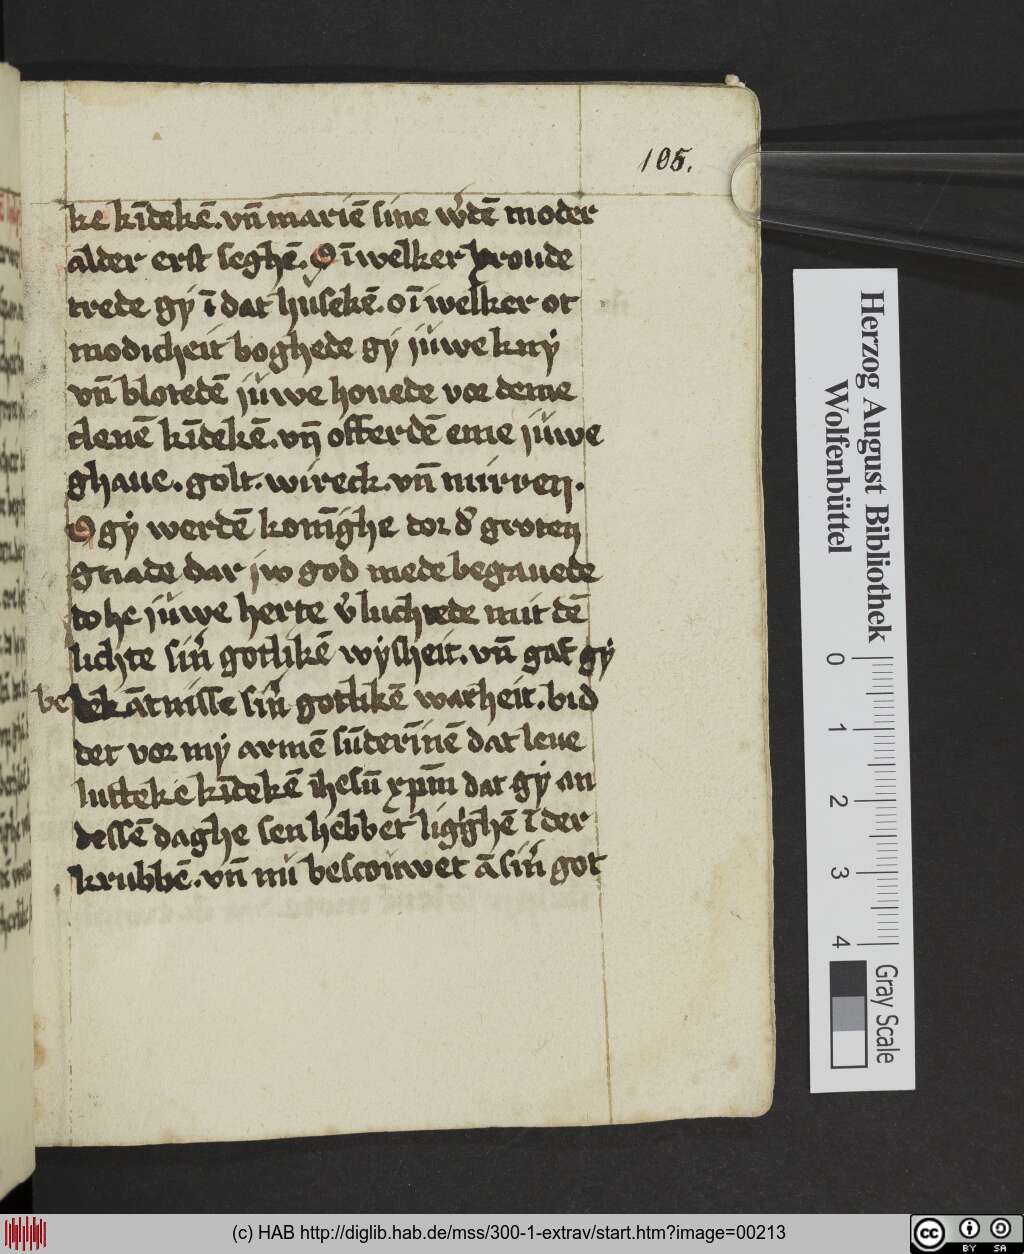 105.
ke kīdekē. vn̄ mariē sine w'dē moder
alder erst seghē. O ī welker vroude
trede gy ī dat huſekē. o ī welker ot
modicheit boghede gy juwe kny
vn̄ bloredē juwe houede vor deme
clenē kīdekē. vn̄ offerdē eme juwe
ghaue. golt. wireck. vn̄ mirren.
O gy werdē konīghe dor d' groten
gnade dar jw god mede begauede
do he juwe herte v'luchtede mit dē
lichte sin' gotlikē wysheit. vn̄ gaf gy
be kātnisse sin' gotlikē warheit. bid
det vor my armē sūderīnē dat leue
lutteke kīdekē ihesū xpm̄ dat gy an
dessē daghe sen hebbet ligghē ī der
krubbē. vn̄ nu bescouwet ā sin' got
Herzog August Bibliothek
Wolfenbüttel
0 1 2 3 4
Gray Scale
(c) HAB http://diglib.hab.de/mss/300-1-extrav/start.htm?image=00213
cc BY SA